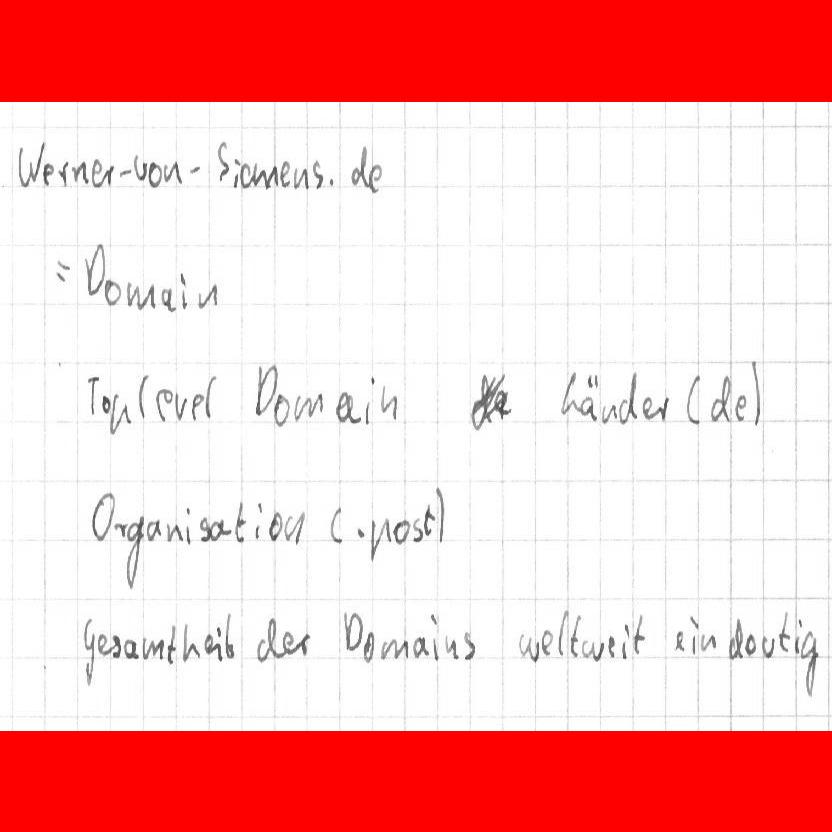 Werner-von-Siemens.de
= Domain
Toplevel Domain Länder (de)
Organisation (.post)
Gesamtheit der Domains weltweit eindeutig